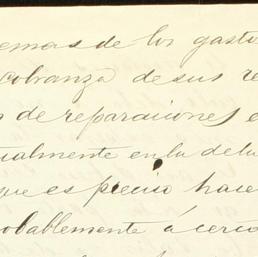 emas de los gasto
cobranza de sus re
s de reparaciones e
ualmente en la de la
que es preciso hace
robablemente á cerca